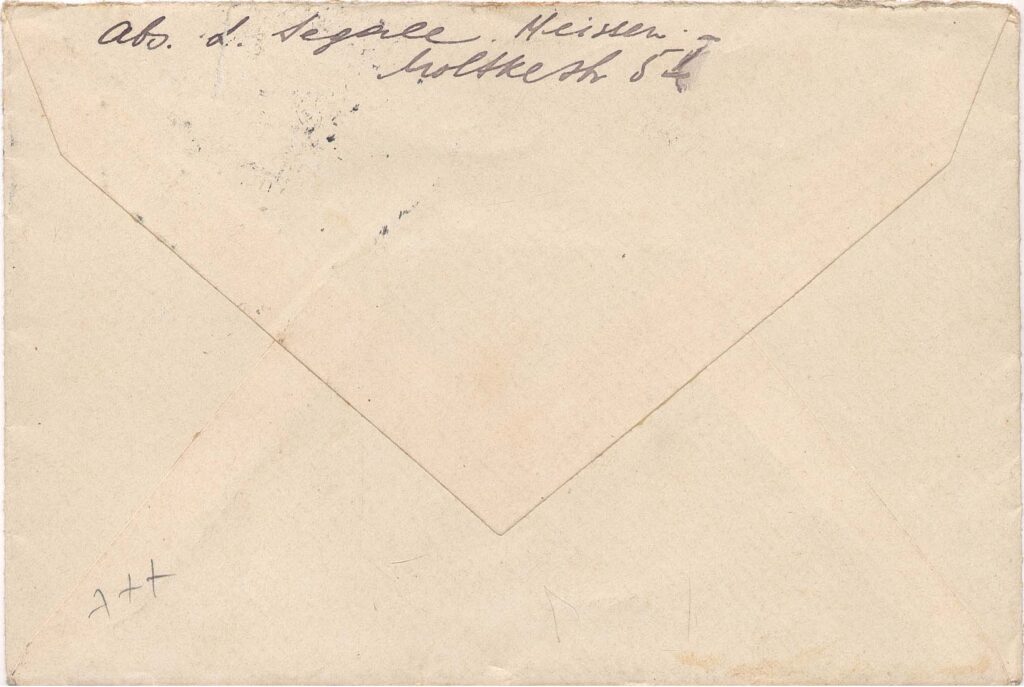 Abs. L. Segall. Meissen.
Moltkestr 5
+++